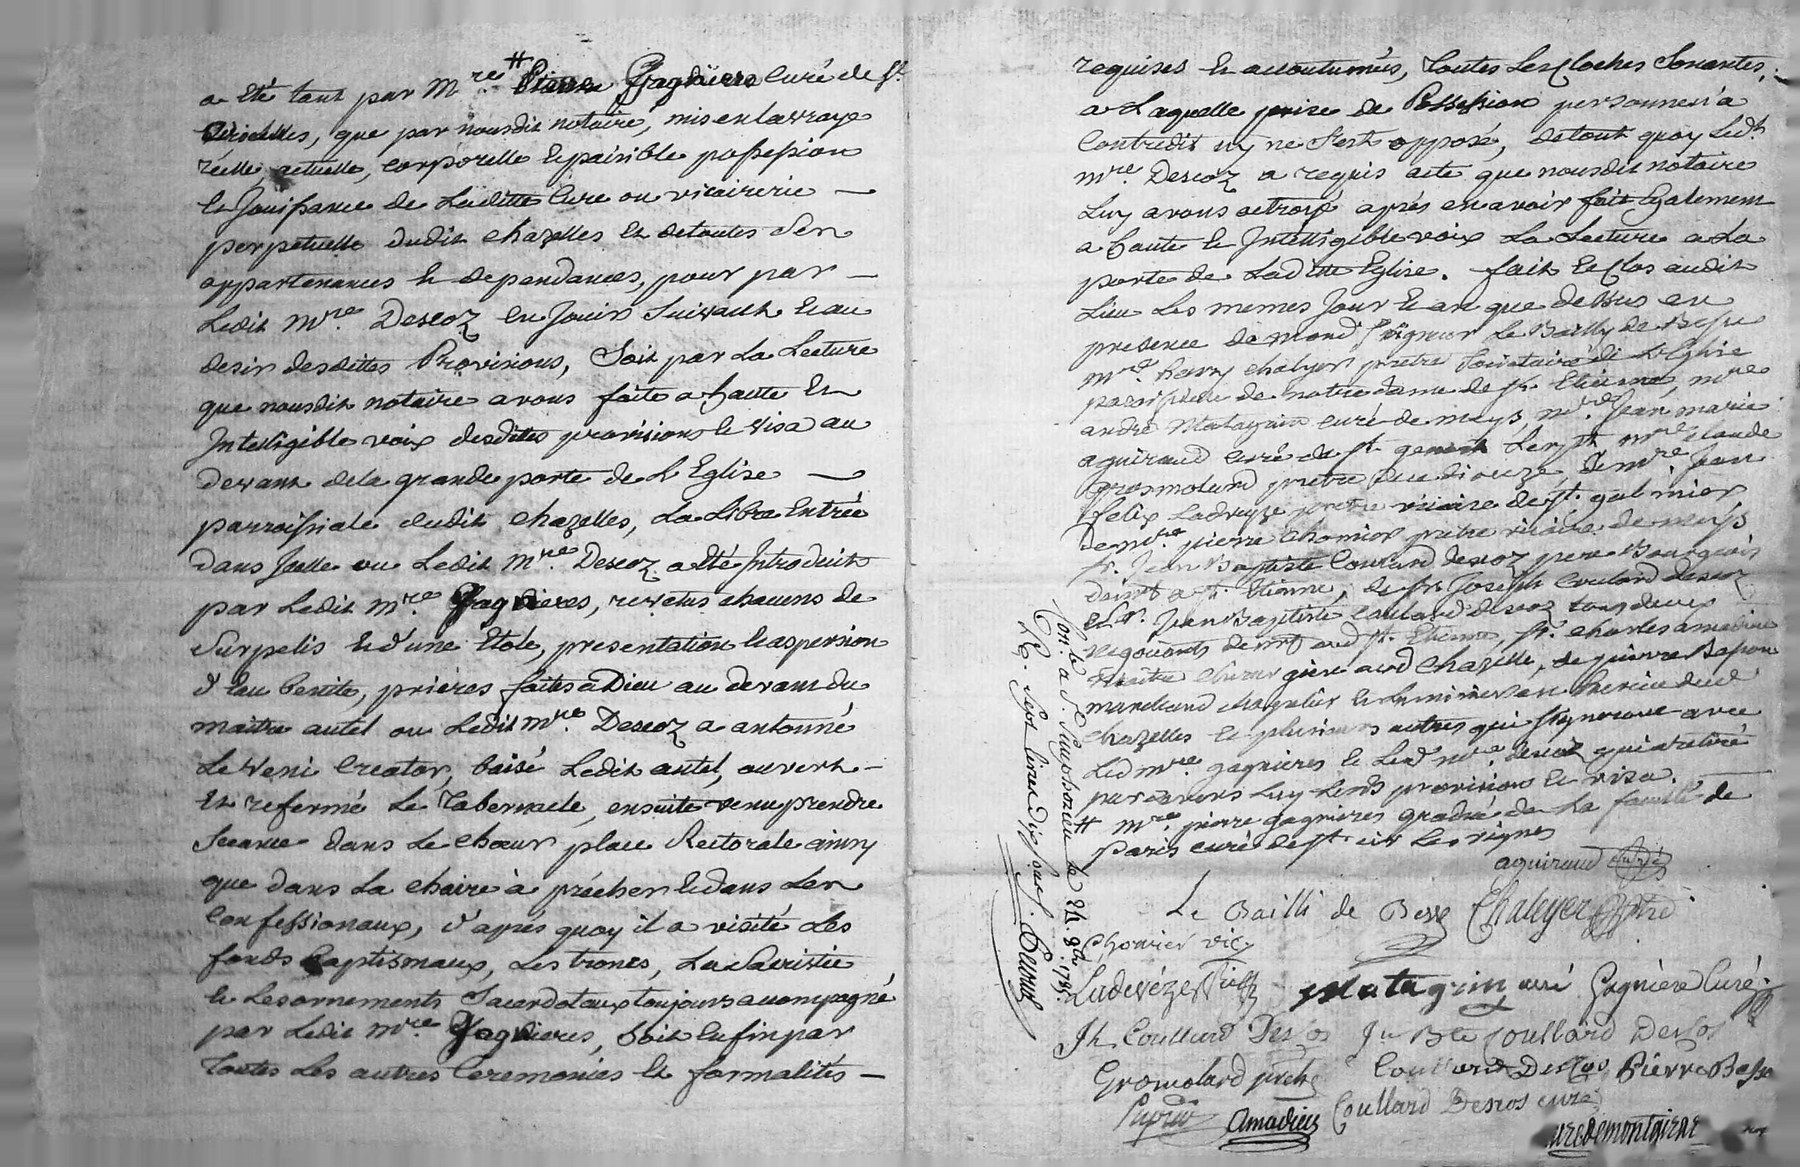 a été tant par Mre # Pierre Gagniere Curé de St
que par nousdit notaire, mis en la vraye
réelle actuelle, corporelle et paisible possession
et Jouissance de Laditte Cure ou vicairerie —
perpetuelle dudit chazelles et detoutes Ses
appartenances et dependances, pour par —
Ledit Mre. Descoz en Jouir Suivant et au
desir desdittes Provisions, Soit par La Lecture
que nousdit notaire avons faite a haute et
Intelligible voix desdittes provisions et visa au
devant de la grande porte de L'Eglise —
parroissiale dudit chazelles, La Libre Entrée
dans Icelle ou Ledit Mre. Descoz a été Introduit
par Ledit Mre Gagnieres, revetus chacuns de
Surpelis et d'une Etole, presentation et aspersion
d'Eau benite, prieres faites a Dieu au devant du
maitre autel ou Ledit Mre. Descoz a antonné
Le Veni Creator, baisé Ledit autel, ouvert —
et refermé Le Tabernacle, ensuite venu prendre
Seance dans Le Chœur place Rectorale ainsy
que dans La chaire à prêcher et dans Les
Confessionaux, d'après quoy il a visité Les
fonds Baptismaux, Les trones, La Sacristie
et Les ornements Sacerdotaux toujours accompagné
par Ledit Mre Gagnieres, Soit Enfin par
toutes Les autres Ceremonies et formalités —
requises et accoutumées, toutes Les Cloches Sonantes,
a Laquelle prise de Possession personne n'a
Contredit ny ne S'est opposé, de tout quoy Ledt
Mre. Descoz a requis acte que nousdit notaire
Luy avons octroyé aprés en avoir fait Egalement
a haute et Intelligible voix La Lecture a La
porte de Laditte Eglise. fait et Clos audit
Lieu Les memes Jour et an que dessus en
presence de Le Bailly de Besse
Mre. chalyer pretre Societaire de L'Eglise
paroissiale de notre dame de St. Etienne, Mre
andré Matagrin curé de meys, Mre. Jean marie
aguiraud curé de St genest Lerpt Mre Claude
Gromolard pretre du dioceze, de Mre. Jean
felix Ladevèze pretre vicaire de St. galmier
de Mre pierre Chomier pretre vicaire de meys
Sr. Jean Baptiste Coulard descoz pere Bourgeois
demt a St. Etienne, de Sr. Joseph Coulard descoz
et Sr. Jean Baptiste Coulard descoz tous deux
negotiants demt aud St. Etienne, Sr. charles amadieu
maitre chirurgien aud Chazelle, de pierre Basson
marchand chapelier et Luminier en Exercice dud
chazelles et plusieurs autres qui Signeront avec
Led Mre gagnieres et Led Mre. descoz qui a retiré
par devers Luy Lesd provisions et visa.
# Mre. pierre gagnieres gradué de La faculté de
Paris curé de St cir Les vignes
aguiraud curé
Le Bailli de Besse Chalyer ptre
Chomier vic
Ladevéze Matagrin curé Gagnière Curé
Jh Coullard Descos Jn Bte Coullard Descos
Gromolard pretre Coullard Descos Pierre Basson
Amadieu Coullard Descos curé
curé de montgirar
Con. le a St. Simphorien le 24. 8bre. 1785.
R. Sept livres dix sols.